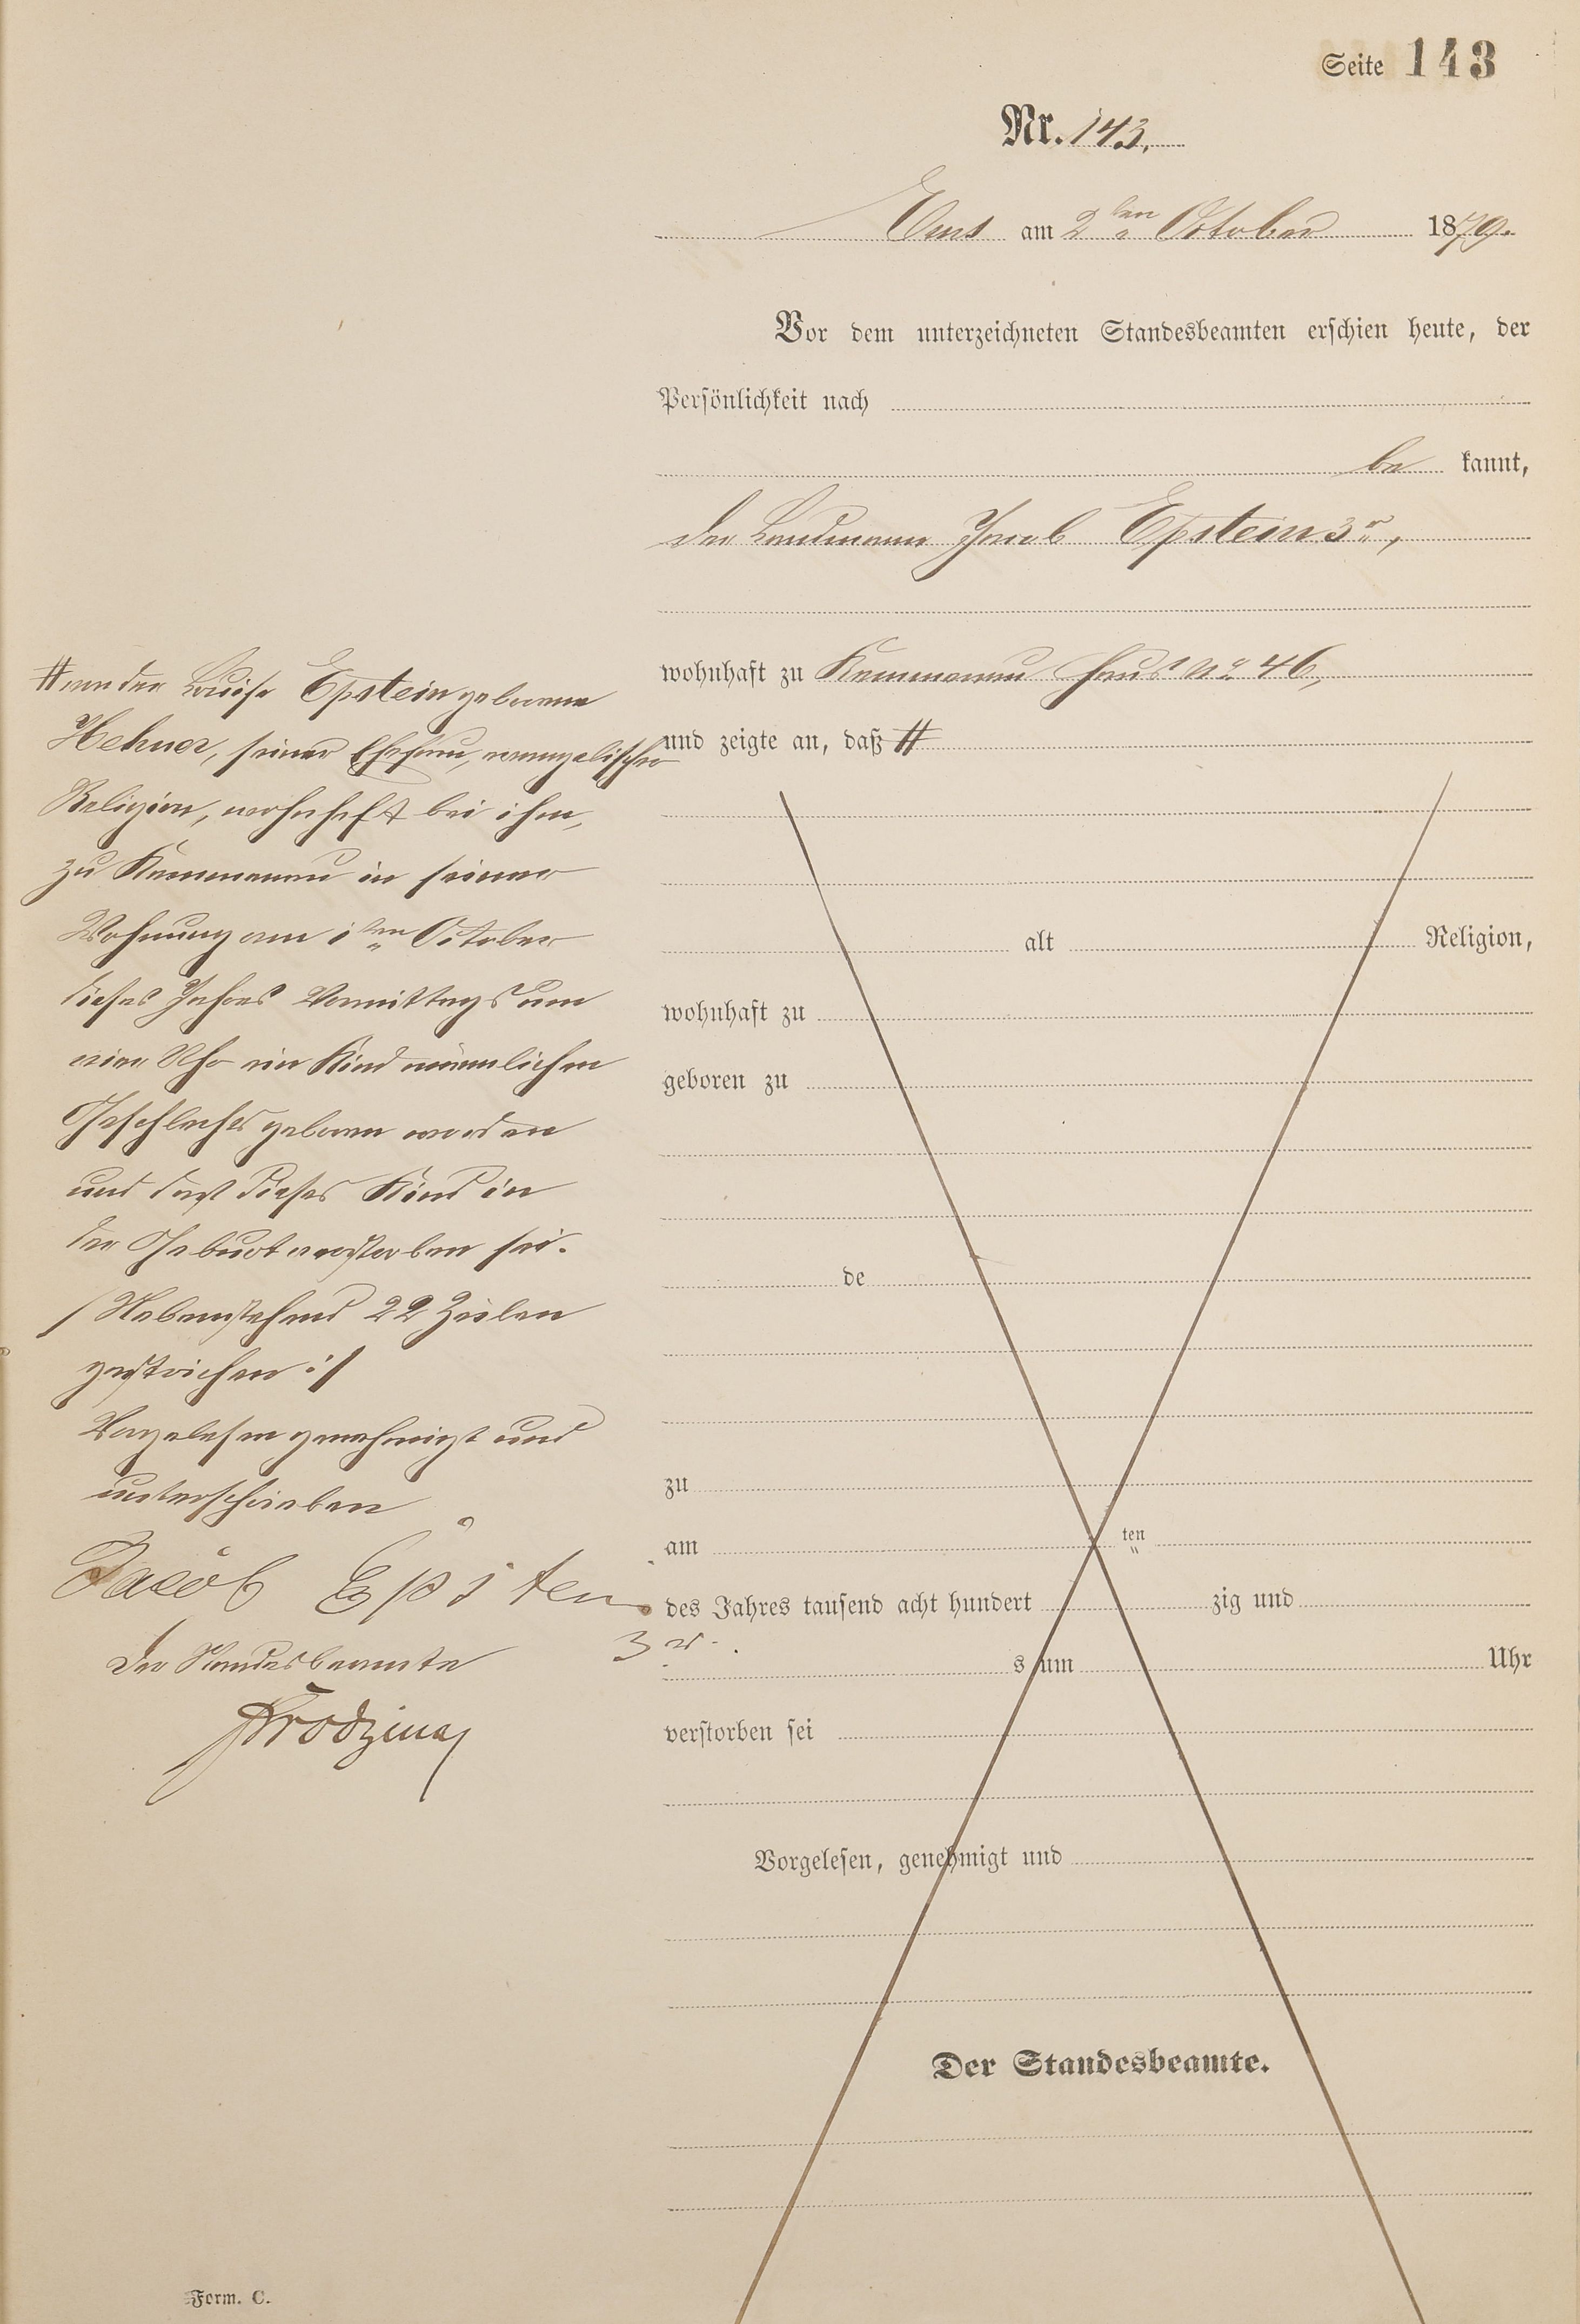 Seite 143
Nr. 143.
Ems am 2ten October 1879.
Vor dem unterzeichneten Standesbeamten erschien heute, der
Persönlichkeit nach
be kannt,
der Landmann Jacob Epstein 3r,
wohnhaft zu Kemmenau Haus No 46,
und zeigte an, daß #
# von der Louise Epstein geborene
Hehner, seiner Ehefrau, evangelischer
Religion, wohnhaft bei ihm,
zu Kemmenau in seiner
Wohnung am 1ten October
dieses Jahres Vormittags um
ein Uhr ein Kind männlichen
Geschlechts geboren worden
und daß dieses Kind in
der Geburt verstorben sei.
/ Nebenstehend 22 Zeilen
gestrichen :/
Vorgelesen genehmigt und
unterschrieben
Jacob Epsten
3r.
Der Standesbeamte
alt Religion,
wohnhaft zu
geboren zu
de
zu
am ten
des Jahres tausend acht hundert zig und
s um Uhr
verstorben sei
Vorgelesen, genehmigt und
Der Standesbeamte.
Form. C.